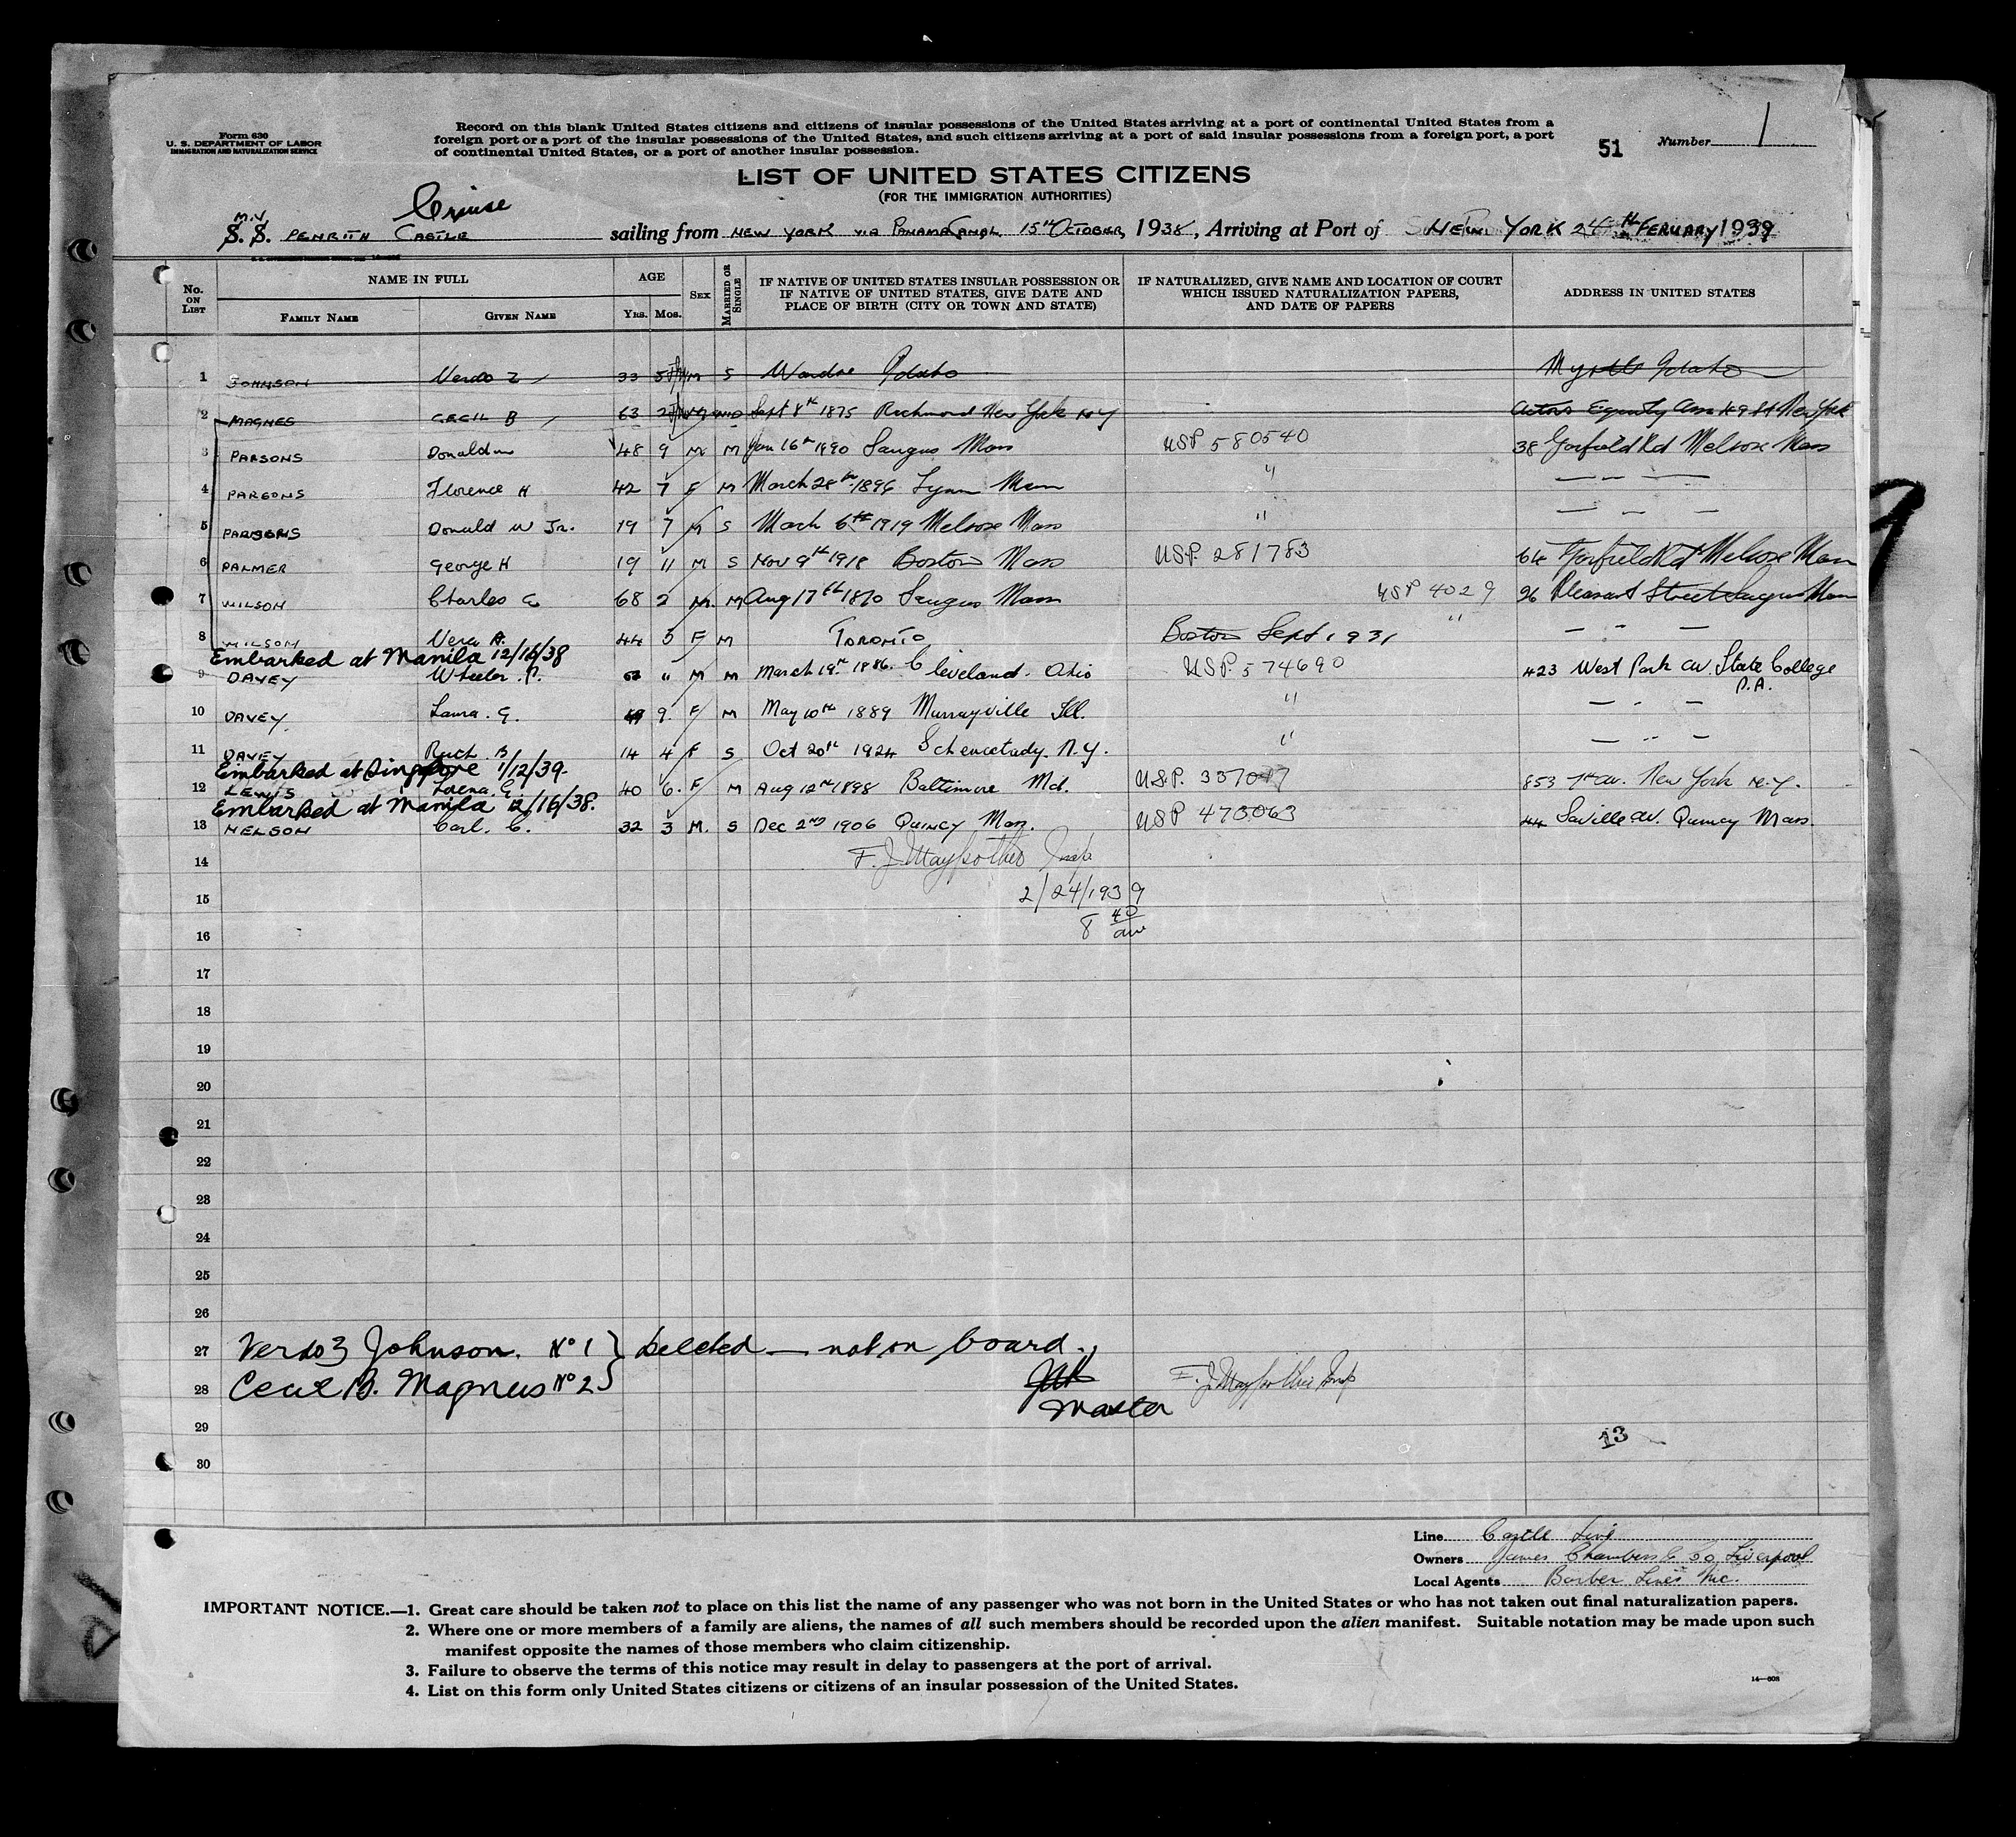 Form 630
U. S. DEPARTMENT OF LABOR
IMMIGRATION AND NATURALIZATION SERVICE
Record on this blank United States citizens and citizens of insular possessions of the United States arriving at a port of continental United States from a
foreign port or a port of the insular possessions of the United States, and such citizens arriving at a port of said insular possessions from a foreign port, a port
of continental United States, or a port of another insular possession.
51 Number 1
LIST OF UNITED STATES CITIZENS
(FOR THE IMMIGRATION AUTHORITIES)
Cruise
M.V
S. S. PENRITH CASTLE sailing from NEW YORK VIA PANAMA CANAL 15TH OCTOBER, 1938, Arriving at Port of NEW YORK 24TH FERUARY 1939
No. ON LIST
NAME IN FULL
FAMILY NAME
GIVEN NAME
AGE
YRS. MOS.
SEX
MARRIED OR SINGLE
IF NATIVE OF UNITED STATES INSULAR POSSESSION OR
IF NATIVE OF UNITED STATES, GIVE DATE AND
PLACE OF BIRTH (CITY OR TOWN AND STATE)
IF NATURALIZED, GIVE NAME AND LOCATION OF COURT
WHICH ISSUED NATURALIZATION PAPERS,
AND DATE OF PAPERS
ADDRESS IN UNITED STATES
1 JOHNSON Verdo Z 33 5 M S Idaho Myrtle Idaho
2 MAGNES CECIL B 63 Sept 8th 1875 Richmond New York NY Actors Equity New York
3 PARSONS Donald w 48 9 M M Jan 16th 1890 Saugus Mass USP 580540 38 Garfield Rd Melrose Mass
4 PARSONS Florence H 42 7 F M March 28th 1896 Lynn Mass " — " —
5 PARSONS Donald W Jr. 19 7 M S March 6th 1919 Melrose Mass " — " —
6 PALMER George H 19 11 M S Nov 9th 1918 Boston Mass USP. 281783 64 Garfield Rd Melrose Mass
7 WILSON Charles E 68 2 M. M Aug 17th 1870 Saugus Mass USP 4029 96 Pleasant Street Saugus Mass
8 WILSON Vera A. 44 5 F M TORONTO Boston Sept 1931 " — " —
Embarked at Manila 12/16/38
9 DAVEY Wheeler. P. " M M March 19th 1886. Cleveland. Ohio USP 574690 423 West Park Av. State College
P.A.
10 DAVEY. Laura. G. 49 9. F M May 10th 1889 Murrayville Ill. " — " —
11 DAVEY Ruth. B 14 4 F S Oct 20th 1924 Schenectady. N.Y. " — " —
Embarked at Singapore 1/12/39.
12 LEWIS 40 6. F M Aug 12th 1898 Baltimore Md. USP. 853 7th Av. New York N.Y.
Embarked at Manila 12/16/38.
13 NELSON Carl. C. 32 3 M. S Dec 2nd 1906 QUINCY Mass. USP 473063 44 Saville Av. Quincy Mass.
14 F. J. Inspr
15 2/24/1939
16 8 40 am
17
18
19
20
21
22
23
24
25
26
27 Verdo Z Johnson. No 1 } Deleted — not on board.
28 Cecil B. Magnes No 2 } F. J. Insp
Master
29
30
13
Line Castle Line
Owners James Chambers & Co Liverpool
Local Agents Barber Lines Inc.
IMPORTANT NOTICE.—1. Great care should be taken not to place on this list the name of any passenger who was not born in the United States or who has not taken out final naturalization papers.
2. Where one or more members of a family are aliens, the names of all such members should be recorded upon the alien manifest. Suitable notation may be made upon such
manifest opposite the names of those members who claim citizenship.
3. Failure to observe the terms of this notice may result in delay to passengers at the port of arrival.
4. List on this form only United States citizens or citizens of an insular possession of the United States.
14—608